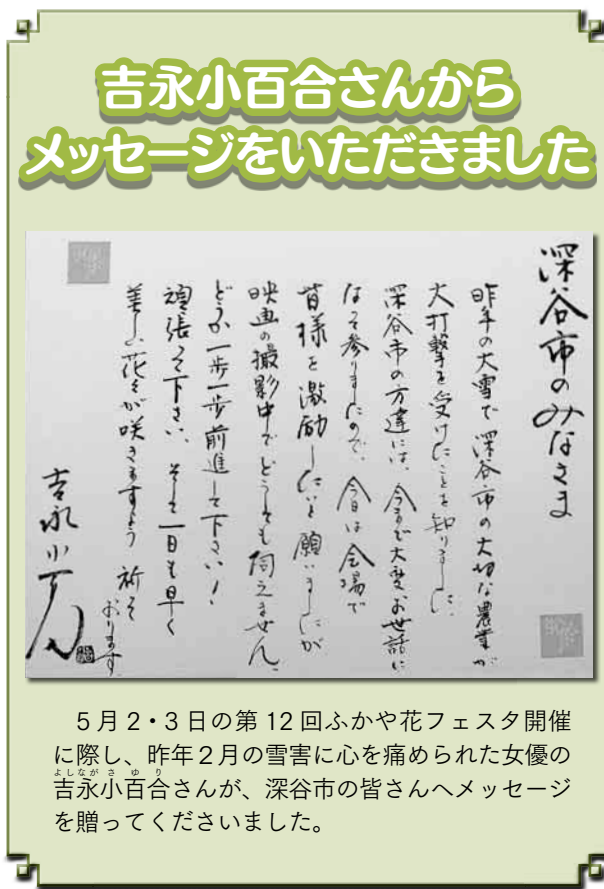 吉永小百合さんから
メッセージをいただきました
深谷市のみなさま
昨年の大雪で 深谷市の大切な農業が
大打撃を受けたことを知りました。
深谷市の方達には、今まで大変お世話に
なって参りましたので、今日は会場で
皆様を激励したいと願いましたが
映画の撮影中でどうしても伺えません。
どうか一歩一歩前進して下さい!
頑張って下さい、そして一日も早く
美しい花々が咲きますよう 祈って
おります
吉永小百合
5月2・3日の第12回ふかや花フェスタ開催
に際し、昨年2月の雪害に心を痛められた女優の
よしなが さ ゆ り
吉永小百合さんが、深谷市の皆さんへメッセージ
を贈ってくださいました。